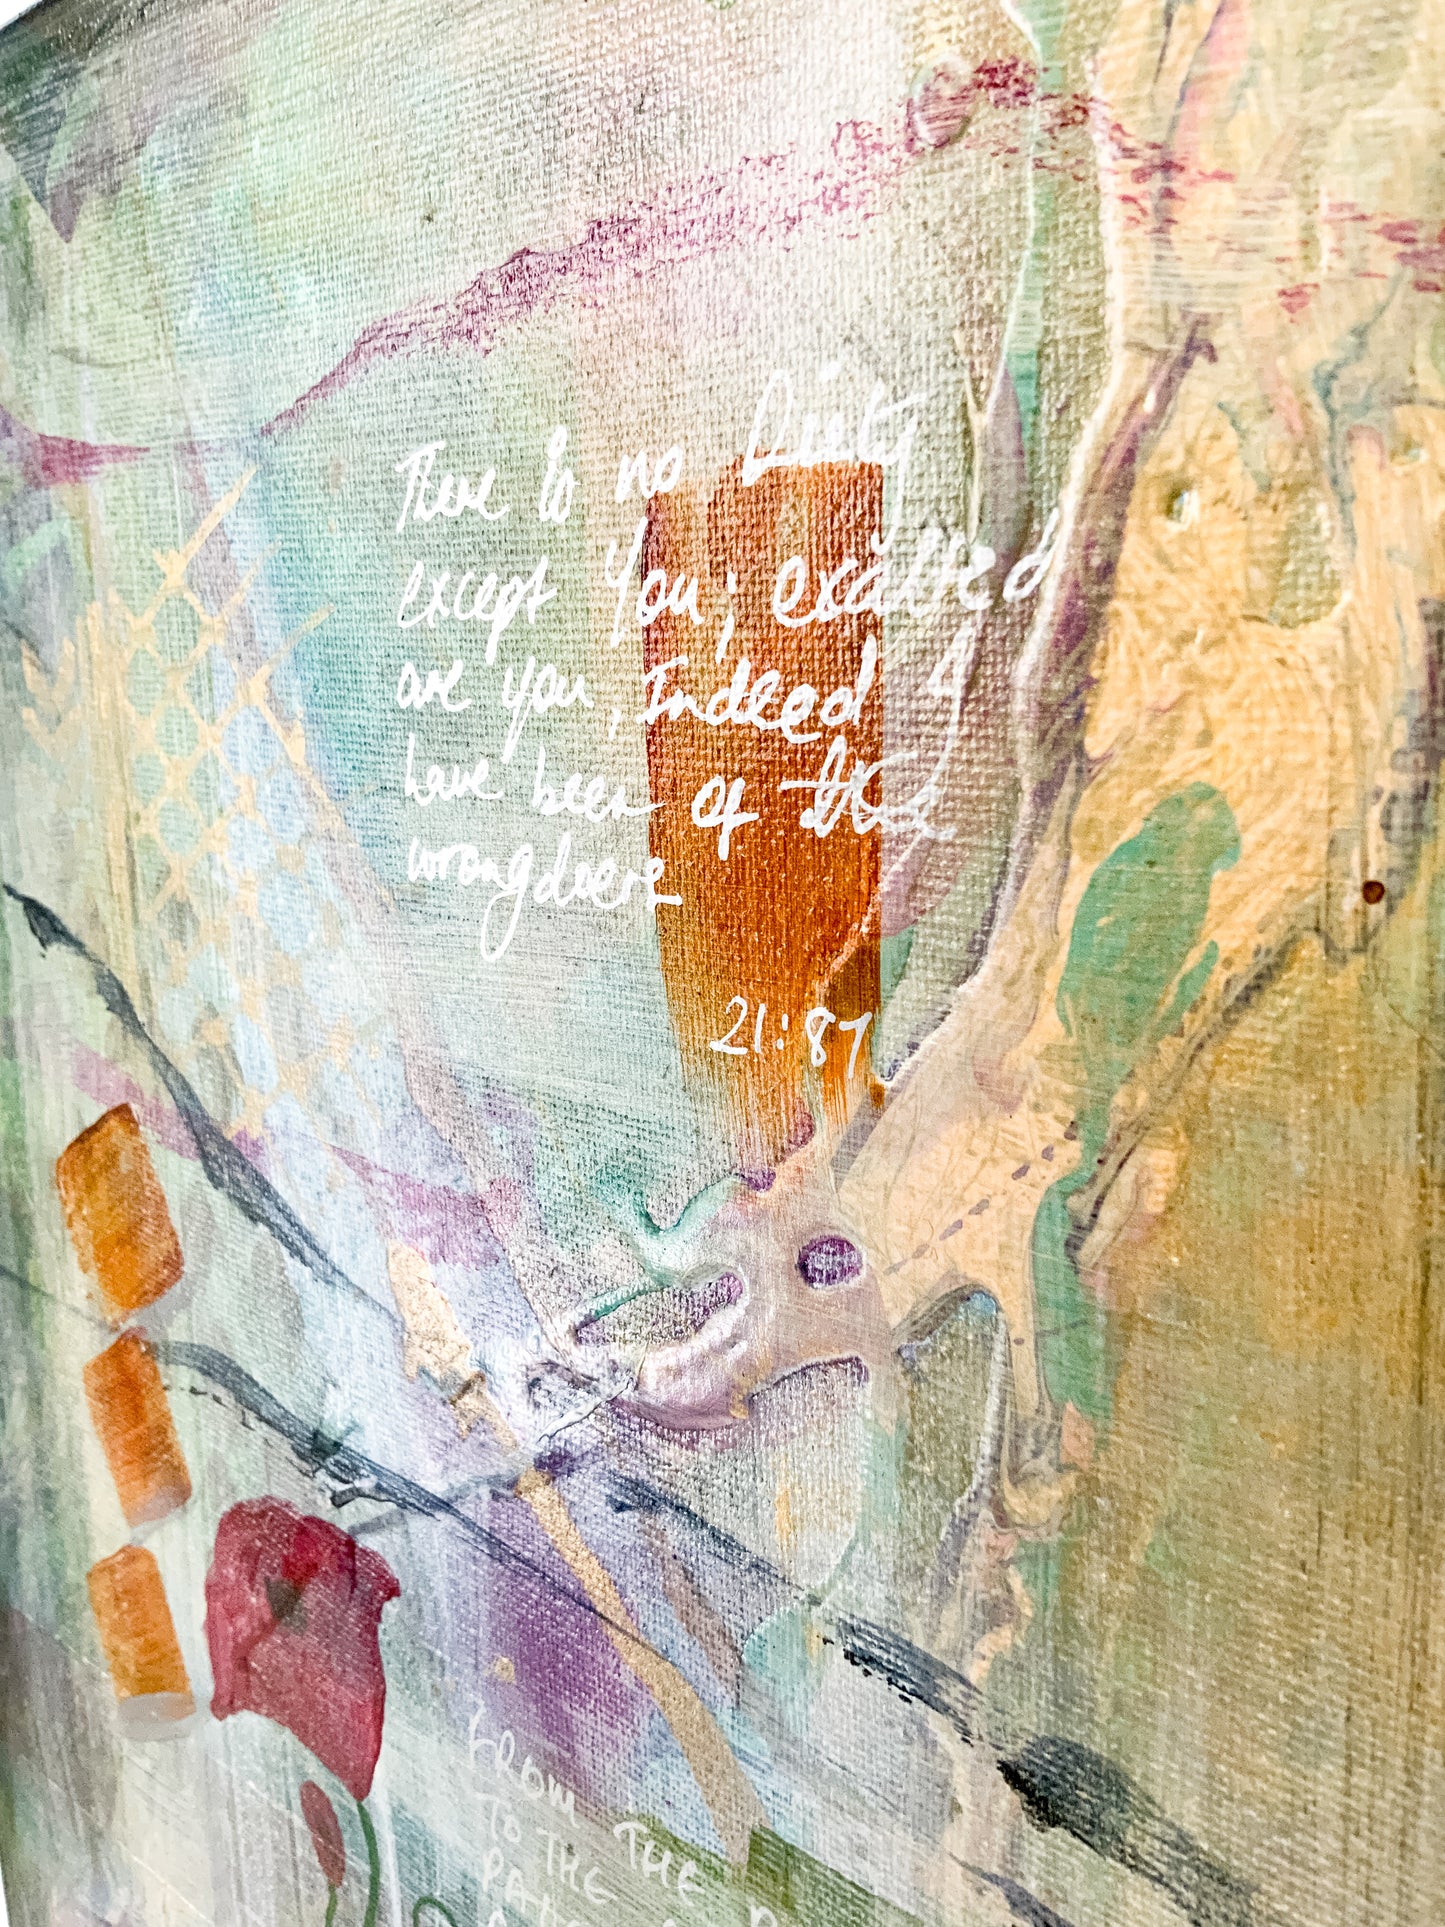 There is no Diety
except You; exalted
are you, Indeed I
have been of the
wrongdoers
21:87
FROM THE
TO THE